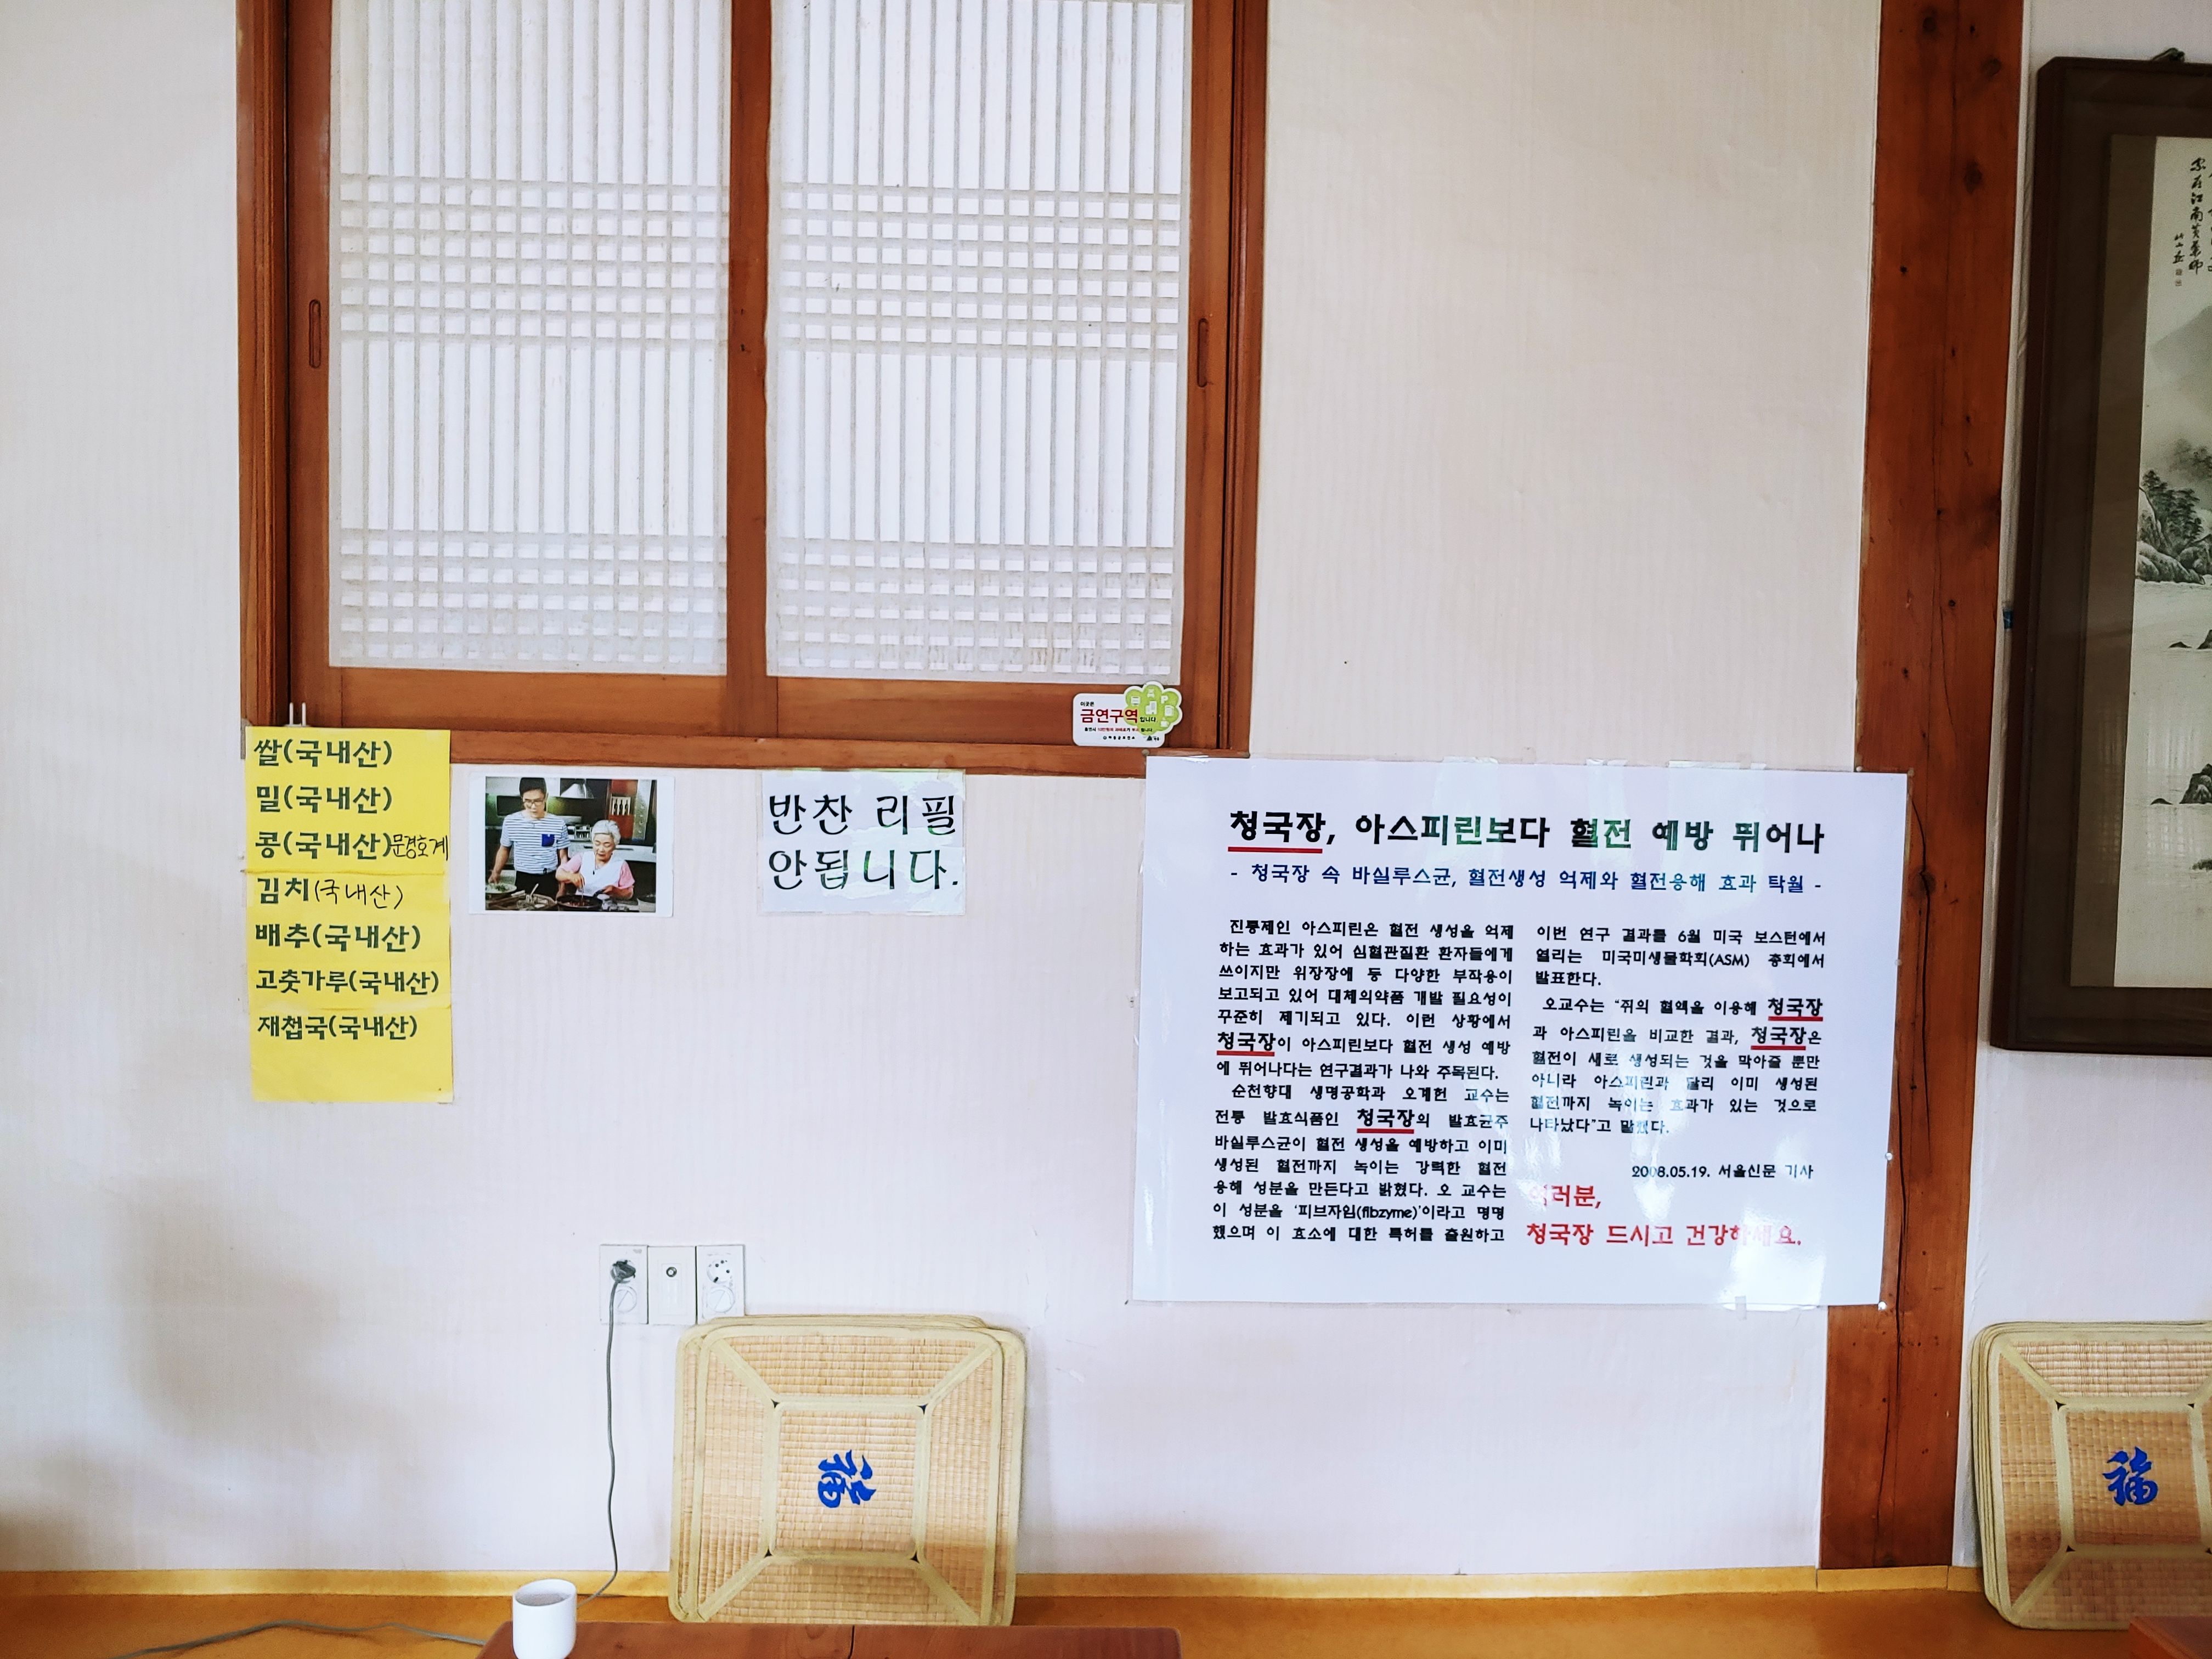 이곳은
금연구역입니다
쌀(국내산)
밀(국내산)
콩(국내산)문경호계
김치(국내산)
배추(국내산)
고춧가루(국내산)
재첩국(국내산)
반찬 리필
안됩니다.
청국장, 아스피린보다 혈전 예방 뛰어나
- 청국장 속 바실루스균, 혈전생성 억제와 혈전용해 효과 탁월 -
진통제인 아스피린은 혈전 생성을 억제
하는 효과가 있어 심혈관질환 환자들에게
쓰이지만 위장장애 등 다양한 부작용이
보고되고 있어 대체의약품 개발 필요성이
꾸준히 제기되고 있다. 이런 상황에서
청국장이 아스피린보다 혈전 생성 예방
에 뛰어나다는 연구결과가 나와 주목된다.
순천향대 생명공학과 오계헌 교수는
전통 발효식품인 청국장의 발효균주
바실루스균이 혈전 생성을 예방하고 이미
생성된 혈전까지 녹이는 강력한 혈전
용해 성분을 만든다고 밝혔다. 오 교수는
이 성분을 '피브자임(fibzyme)'이라고 명명
했으며 이 효소에 대한 특허를 출원하고
이번 연구 결과를 6월 미국 보스턴에서
열리는 미국미생물학회(ASM) 총회에서
발표한다.
오교수는 "쥐의 혈액을 이용해 청국장
과 아스피린을 비교한 결과, 청국장은
혈전이 새로 생성되는 것을 막아줄 뿐만
아니라 아스피린과 달리 이미 생성된
혈전까지 녹이는 효과가 있는 것으로
나타났다"고 말했다.
2008.05.19. 서울신문 기사
여러분,
청국장 드시고 건강하세요.
福
福